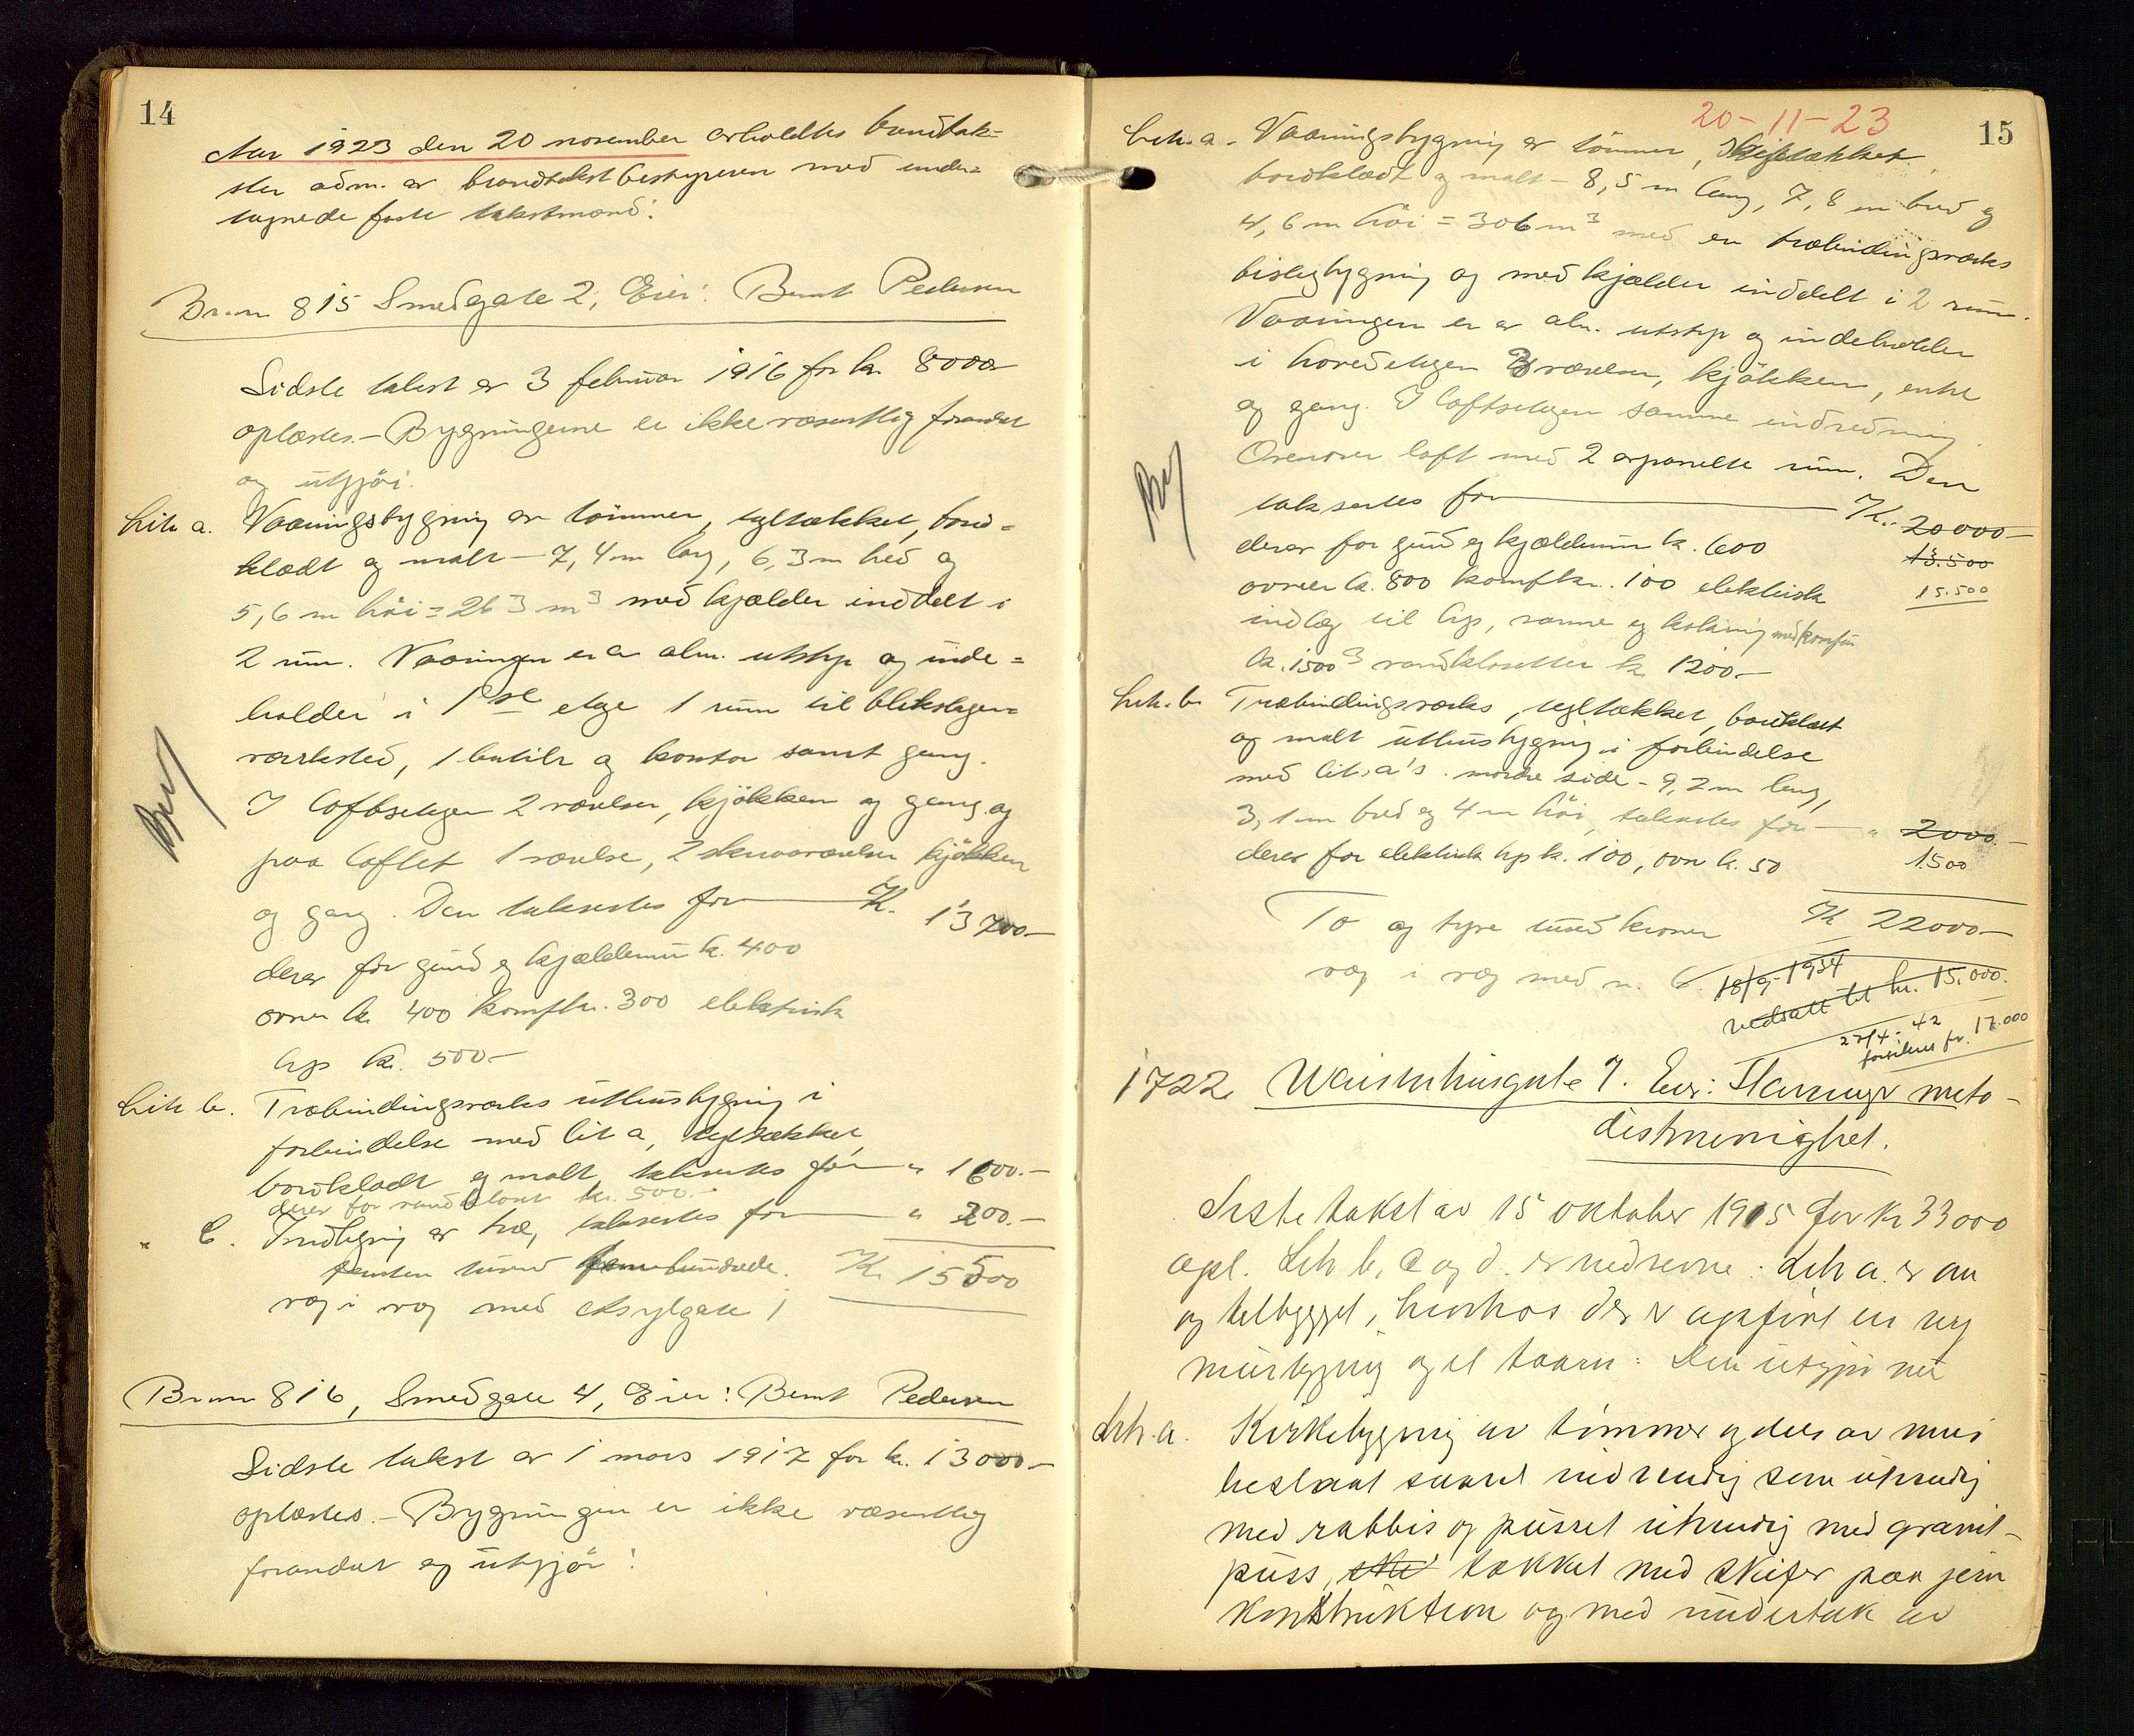 14
Aar 1923 den 20 november avholdtes brandtak-
ster adm. av brandtakstbestyreren med under-
tegnede faste takstmænd:
Br. nr. 815 Smedgate 2, Eier: Bernt Pedersen
Sidste takst av 3 februar 1916 for kr. 8000
oplæstes. - Bygningerne er ikke væsentlig forandret
og utgjör:
Litr. a. Vaaningsbygning av tömmer, tegltækket, bord-
klædt og malt - 7,4 m lang, 6,3 m bred og
5,6 m höi = 263 m³ med kjælder inddelt i
2 rum. Vaaningen er av alm. utstyr og inde-
holder i 1ste etage 1 rum til blikslager-
verksted, 1 butik og kontor samt gang.
I loftsetagen 2 værelser, kjökken og gang og
paa loftet 1 værelse, 2 skraaværelser kjökken
og gang. Den takseres for Kr. 13700-
derav for grund og kjælderrum kr. 400
ovner kr. 400 komf kr. 300 elektrisk
lys kr. 500-
Litr. b. Træbindingsverks uthusbygning i
forbindelse med lit a, tegltækket,
bordklædt og malt takseres for " 1600.-
derav for vandklosett kr. 500.-
" C. Indhegning av træ, takseres for " 200.-
femten tusind femhundrede. Kr 15500
væg i væg med Asylgate 1
Br. nr. 816, Smedgate 4, Eier: Bernt Pedersen
Sidste takst av 1 mars 1917 for kr. 13000-
oplæstes. - Bygningen er ikke væsentlig
forandret og utgjör:
20-11-23
15
Litr. a. Vaaningsbygning av tömmer, skifertækket,
bordklædt og malt - 8,5 m lang, 7,8 m bred og
4,6 m höi = 306 m³ med en træbindingsverks
bislagbygning og med kjælder inddelt i 2 rum.
Vaaningen er av alm. utstyr og indeholder
i hovedetagen 3 værelser, kjökken, entre
og gang. I loftsetagen samme indredning.
Ovenover loft med 2 avpanelte rum. Den
takseres for Kr. 20000-
13.500
15.500
derav for grund og kjælderrum kr. 600
ovner kr. 800 komf kr. 100 elektrisk
indlæg til lys, varme og kokning med komfur
kr. 1500 3 vandklosetter kr 1200.-
Litr. b. Træbindingsverks, tegltækket, bordklædt
og malt uthusbygning i forbindelse
med lit. a's nordre side - 9,2 m lang,
3,1 m bred og 4 m höi, takseres for " 2000.-
1500
derav for elektrisk lys kr. 100, ovn kr. 50
To og tyve tusind kroner Kr 22000-
væg i væg med n. 6.
18/9-1934
nedsatt til kr. 15.000.
27/4-42
forsikres for 17.000
1722 Waisenhusgate 7. Eier: Stavanger meto-
distmenighet.
Siste takst av 15 oktober 1915 for kr 33000
opl. Litr b, c og d. er nedrevne. Litr a. er om
og tilbygget, hvorhos der er opfört en ny
murbygning og et taarn: Den utgjör nu
Litr. a. Kirkebygning av tömmer og dels av mur
beslaat saavel indvendig som utvendig
med rabbis og pusset utvendig med granit-
puss, ski takket med skifer paa jern
konstruktion og med undertak av